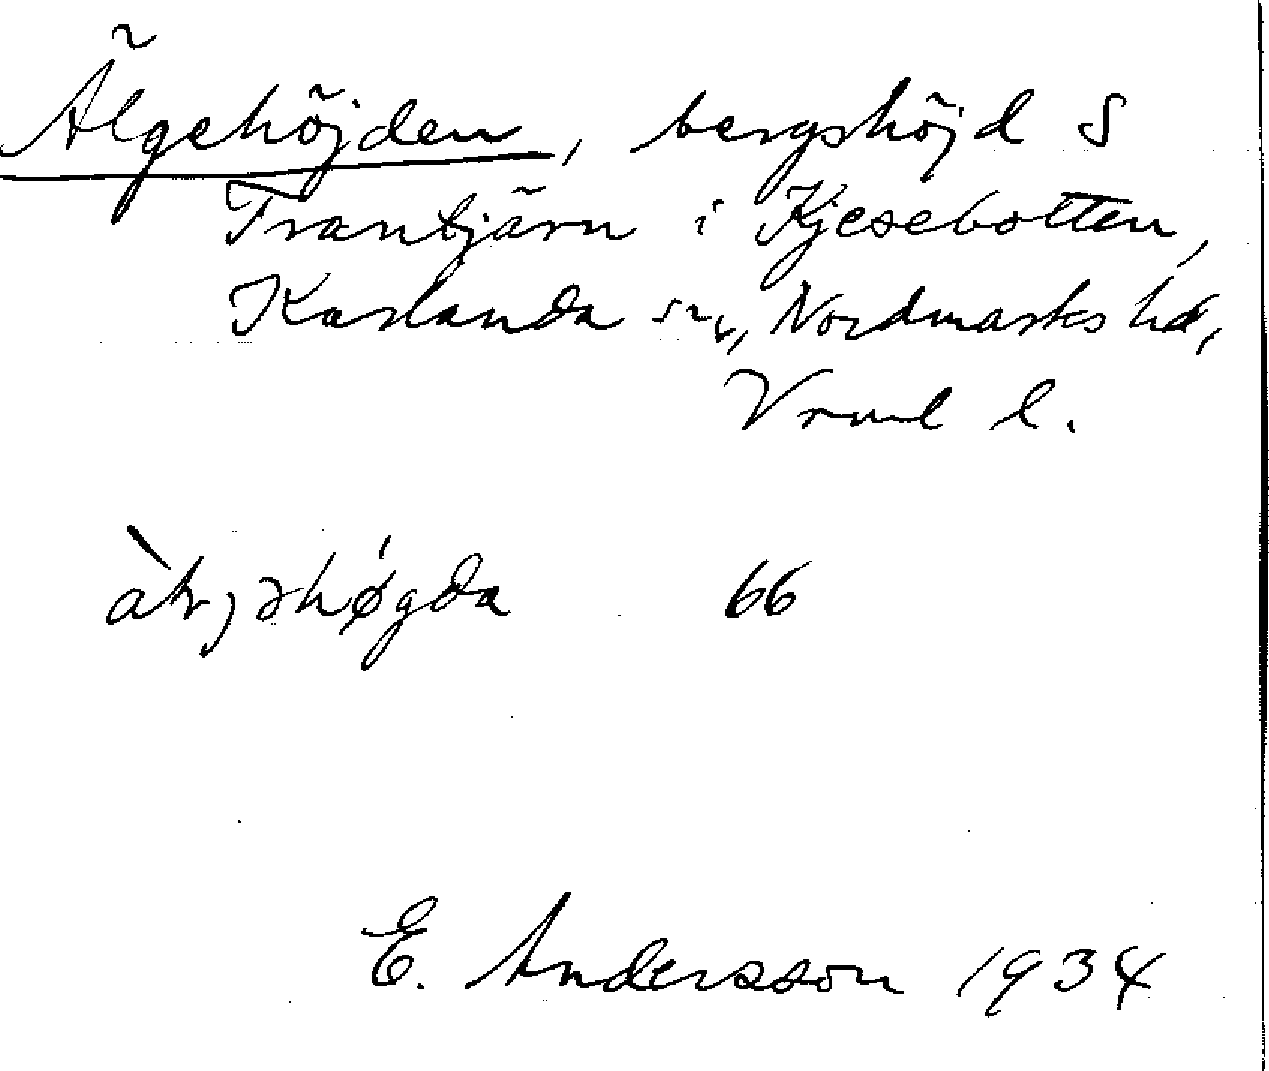 Älgehöjden, bergshöjd S
Trantjärn i Kjesebotten,
Karlanda sn, Nordmarks hd,
Vrml l.
66
E. Andersson 1934